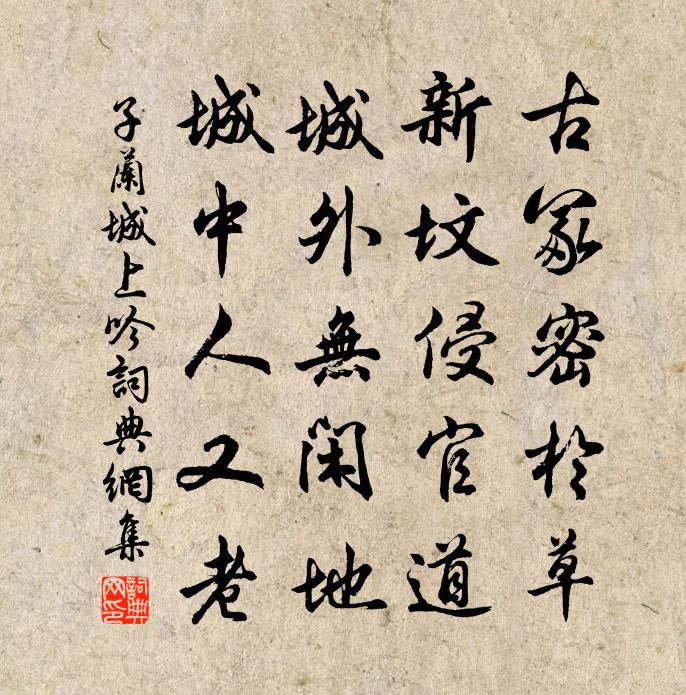 古冢密於草
新坟侵官道
城外無閑地
城中人又老
子蘭城上吟詞典網集
詞典網印